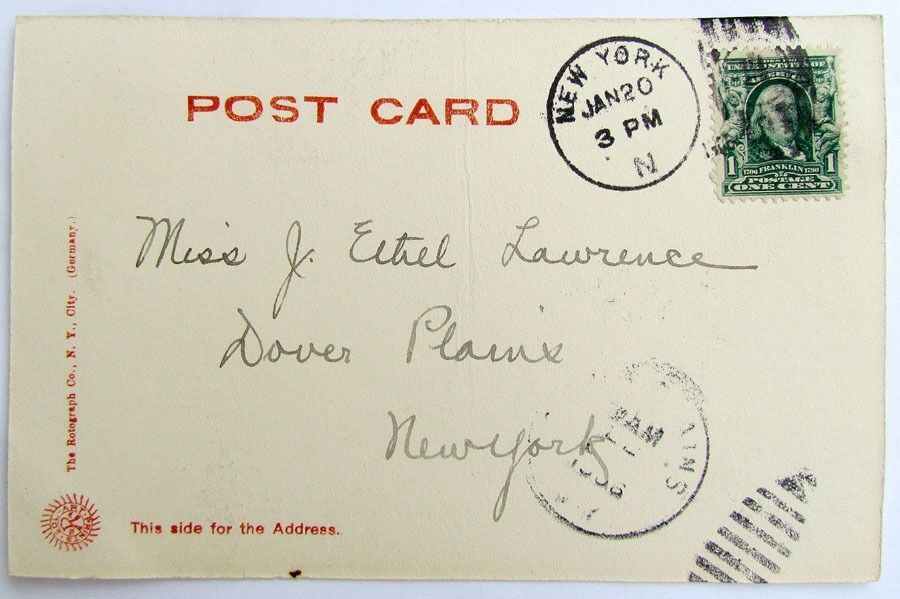 POST CARD
NEW YORK
JAN 20
3 PM
N
UNITED STATES OF
AMERICA
1 1706 FRANKLIN 1790 1
POSTAGE
ONE CENT
Miss J. Ethel Lawrence
Dover Plains
New York
AM
AINS
The Rotograph Co., N. Y., City. (Germany.)
This side for the Address.